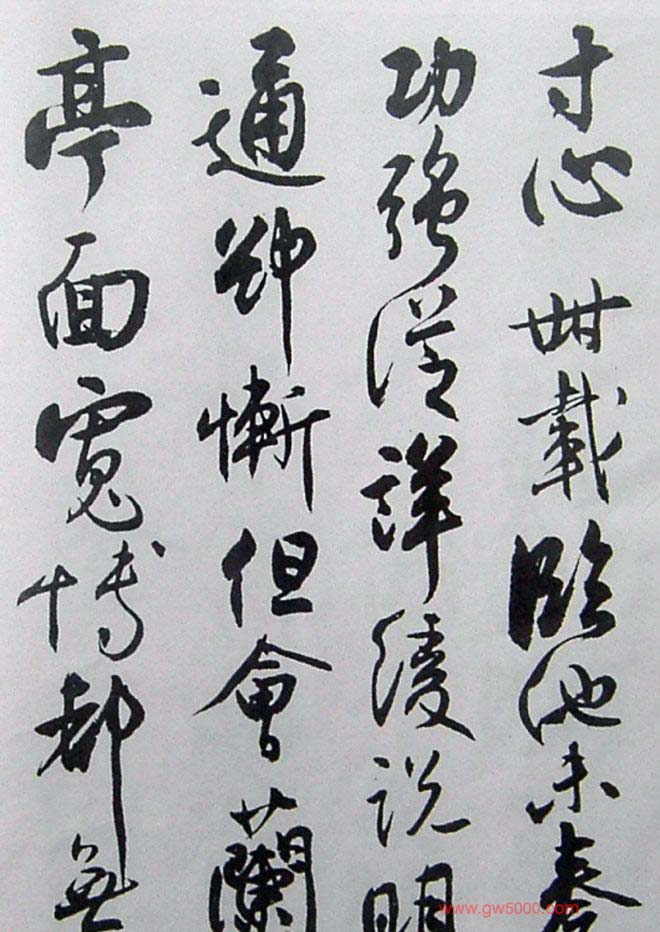 寸心 卌載臨池未奏
功強從詳緩說明
通卻慚但會蘭
亭面寬博都無
www.gw5000.com